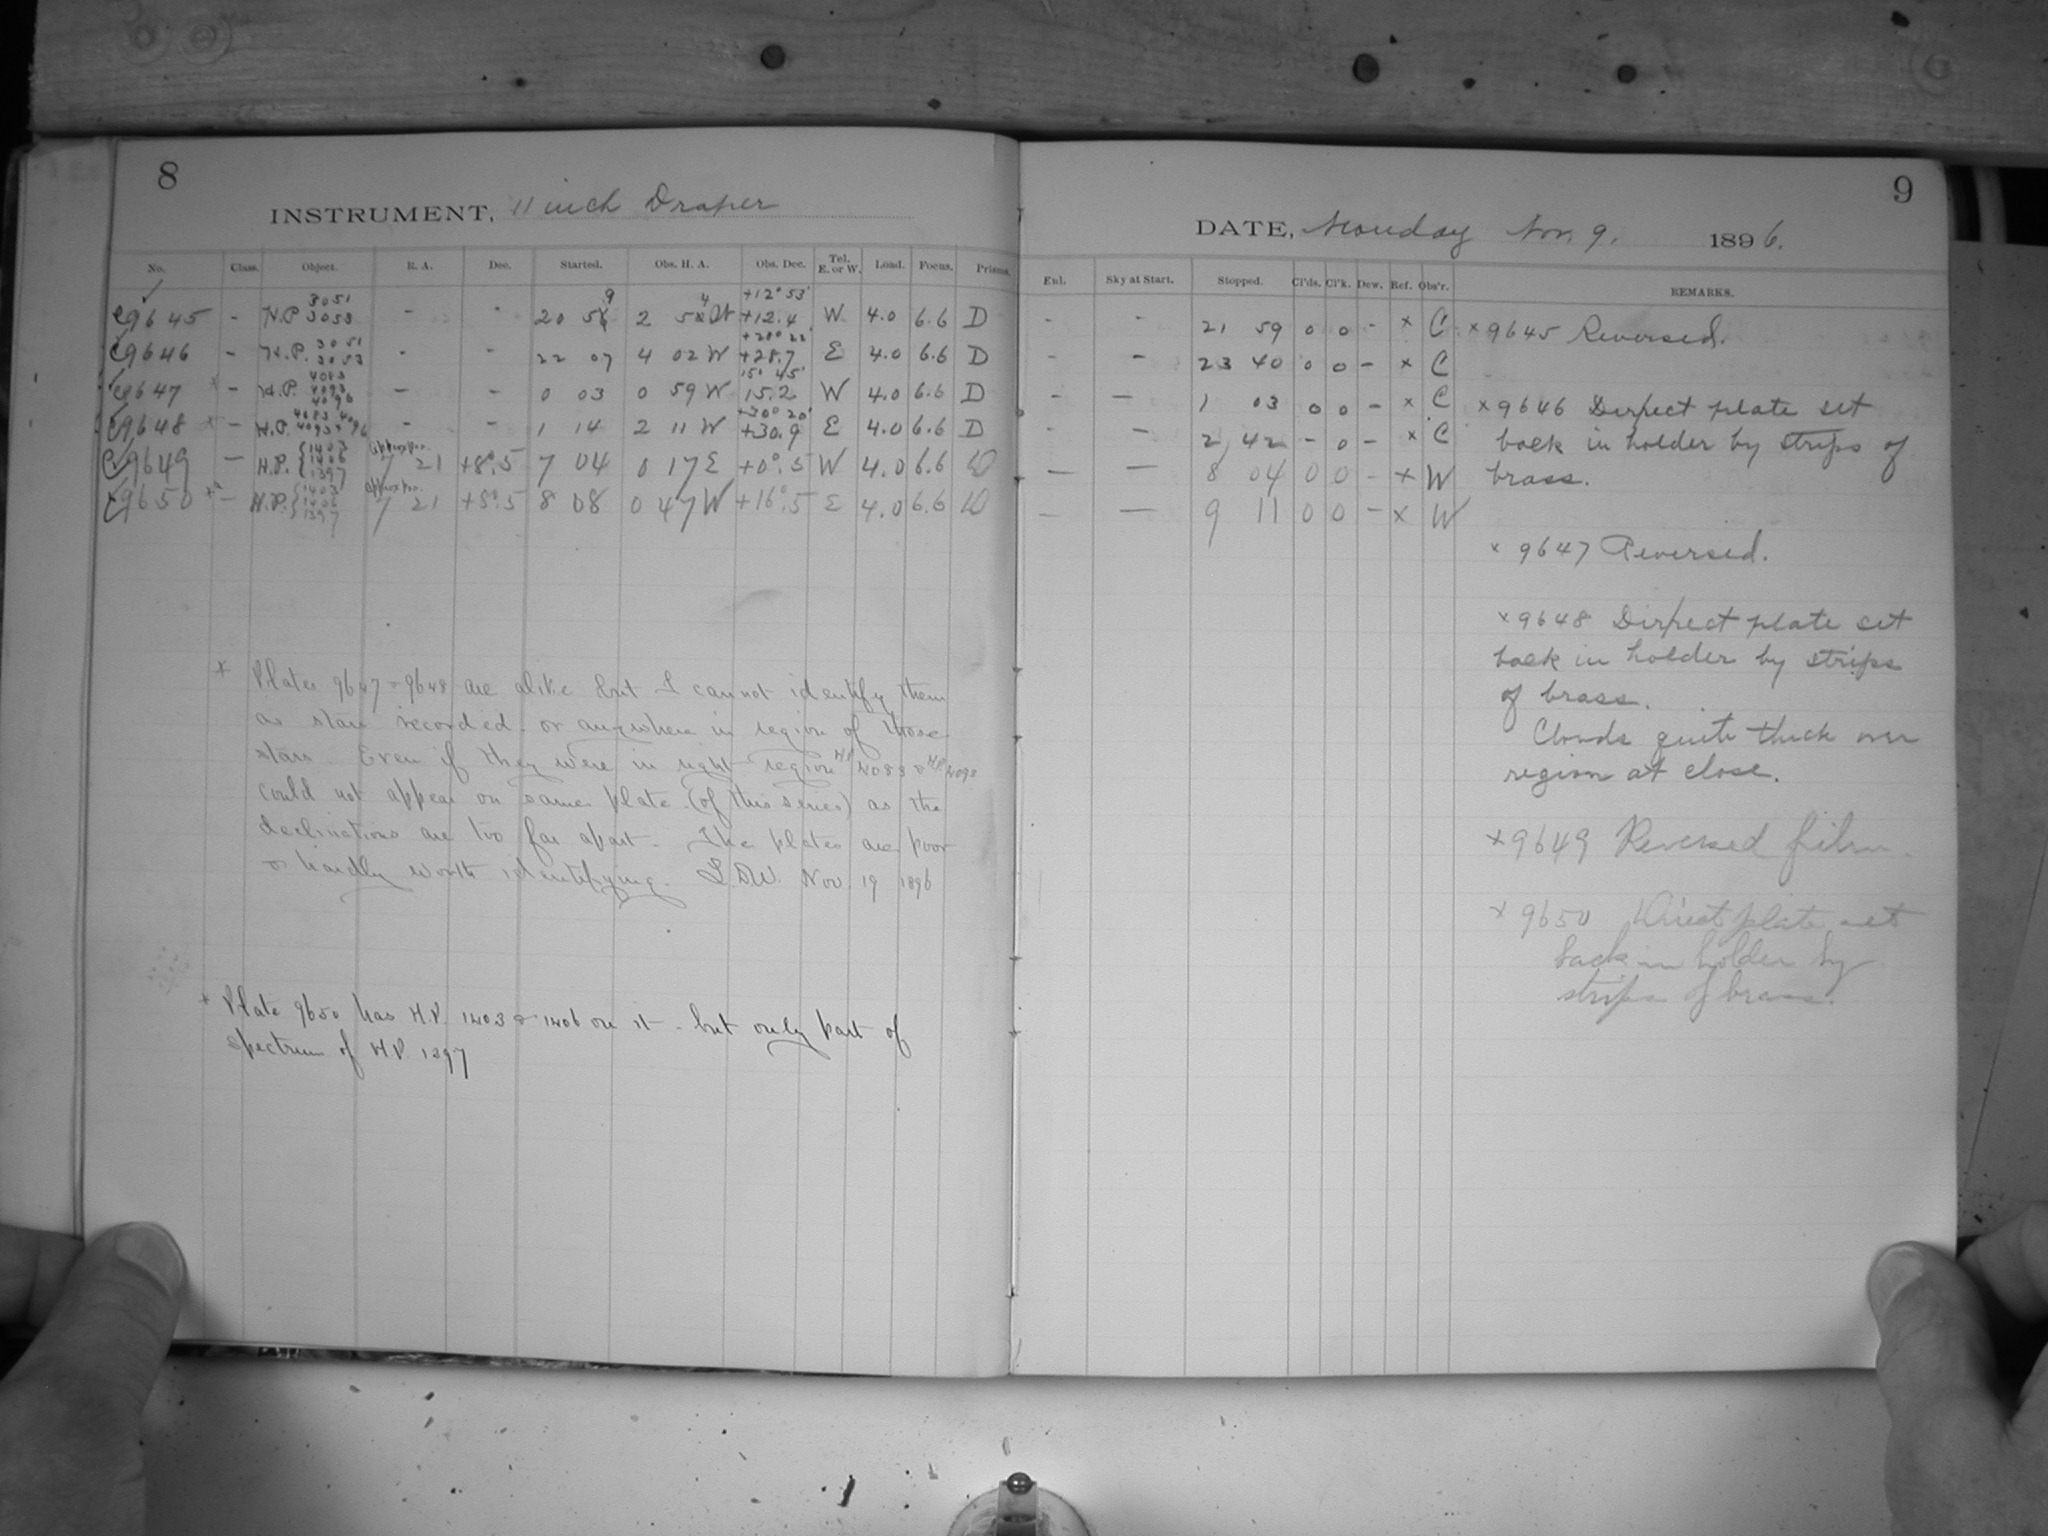 8
INSTRUMENT, 11 inch Draper
No. Class. Object. R. A. Dec. Started. Obs. H. A. Obs. Dec. Tel. E. or W. Load. Focus. Prisms.
c9645 - H.P. 3051 3053 - - 20 59 2 54 W +12° 53' +12.4 W 4.0 6.6 D
c9646 - H.P. 3051 3053 - - 22 07 4 02 W +28° 22' +28.7 E 4.0 6.6 D
c9647 x - H.P. 4083 4093 4096 - - 0 03 0 59 W 15° 45' 15.2 W 4.0 6.6 D
c9648 x - H.P. 4083 4093 4096 - - 1 14 2 11 W +30° 20' +30.9 E 4.0 6.6 D
c9649 - H.P. { 1403 1406 1397 approx pos. 7 21 +8°.5 7 04 0 17 E +0°.5 W 4.0 6.6 D
c9650 x - H.P. { 1403 1406 1397 approx pos. 7 21 +8°.5 8 08 0 47 W +16°.5 E 4.0 6.6 D
x Plates 9647 & 9648 are alike but I cannot identify them
as stars recorded or anywhere in region of those
stars. Even if they were in right region HP 4083 & HP 4093
could not appear on same plate (of this series) as the
declinations are too far apart. The plates are poor
& hardly worth identifying. L.D.W. Nov 19 1896
x Plate 9650 has H.P. 1403 & 1406 on it - but only part of
spectrum of H.P. 1397
9
DATE, Monday Nov. 9, 1896.
Ent. Sky at Start. Stopped. Cl'ds. Cl'k. Dew. Ref. Obs'r. REMARKS.
- - 21 59 0 0 - x C
- - 23 40 0 0 - x C
- - 1 03 0 0 - x C
- - 2 42 - 0 - x C
- - 8 04 0 0 - x W
- - 9 11 0 0 - x W
x 9645 Reversed.
x 9646 Direct plate set
back in holder by strips of
brass.
x 9647 Reversed.
x 9648 Direct plate set
back in holder by strips
of brass.
Clouds quite thick over
region at close.
x 9649 Reversed film.
x 9650 Direct plate set
back in holder by
strips of brass.